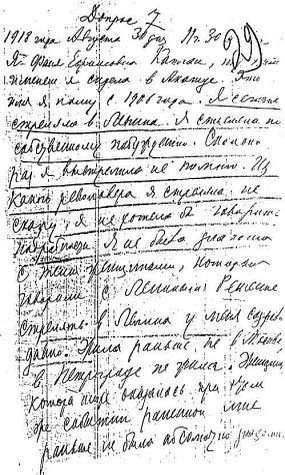 Допрос 7
1918 года Августа 30 дня 11 ч. 30
Я Фаня Ефимовна Каплан,
я сидела в Акатуе. Это
имя я ношу с 1906 года. Я сегодня
стреляла в Ленина. Я стреляла по
собственному побуждению. Сколько
раз я выстрелила не помню. Из
какого револьвера я стреляла не
скажу, я не хотела бы говорить
подробности. Я не была знакома
с теми женщинами, которые
говорили с Лениным. Решение
стрелять в Ленина у меня созрело
давно. Жила раньше не в Москве
в Петрограде не жила. Женщина
которая тоже оказалась при
событии раненой мне
раньше не была абсолютно